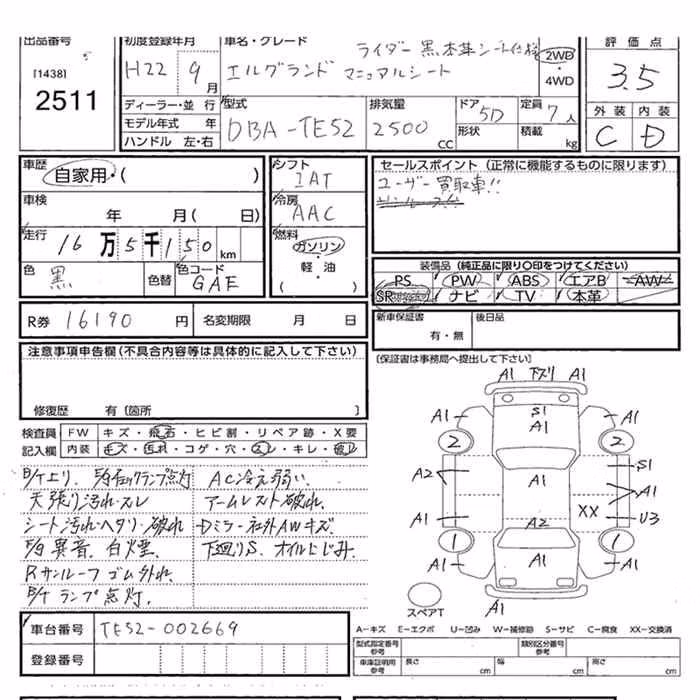 出品番号
[1438]
2511
初度登録年月
H22 9月
車名・グレード
ライダー 黒本革シート仕様
エルグランド マニュアルシート
2WD
・
4WD
評価点
3.5
外装 内装
C D
ディーラー・並行
モデル年式 年
ハンドル 左・右
型式
DBA-TE52
排気量
2500 cc
ドア 5D
形状
定員 7人
積載 kg
車歴
自家用・( )
車検
年 月( 日)
走行
16万5千150km
色 黒 色替
色コード
GAE
シフト
IAT
冷房
AAC
燃料
ガソリン
・
軽・油
( )
セールスポイント (正常に機能するものに限ります)
ユーザー買取車!!
装備品 (純正品に限り〇印をつけてください)
PS PW ABS エアB AW
SR ナビ TV 本革
R券 16190 円
名変期限 月 日
新車保証書
有・無
後日品
(保証書は事務局へ提出して下さい)
注意事項申告欄(不具合内容等は具体的に記入して下さい)
修復歴 有(箇所 )
検査員
記入欄
FW キズ・飛石・ヒビ割・リペア跡・X要
内装 キズ・汚れ・コゲ・穴・スレ・キレ・破レ
天張り汚れ・スレ
シート汚れ・ヘタリ・破れ
E/g異音、白煙、
Rサンルーフゴム外れ、
ランプ点灯、
AC冷え弱い
アームレスト破れ、
Dミラー・社外AWキズ
下廻りS、オイルにじみ、
A1 下スリ A1
A1 S1 A1
A1
2 2
A2 A1 S1
A1
A1 A2 XX U3
1 1
A1 A1 A1
A1
スペアT
A-キズ E-エクボ U-凹み W-補修跡 S-サビ C-腐食 XX-交換済
車台番号 TE52-002669
登録番号
型式指定番号
参考
類別区分番号
参考
車庫証明用
参考
長さ cm
幅 cm
高さ cm